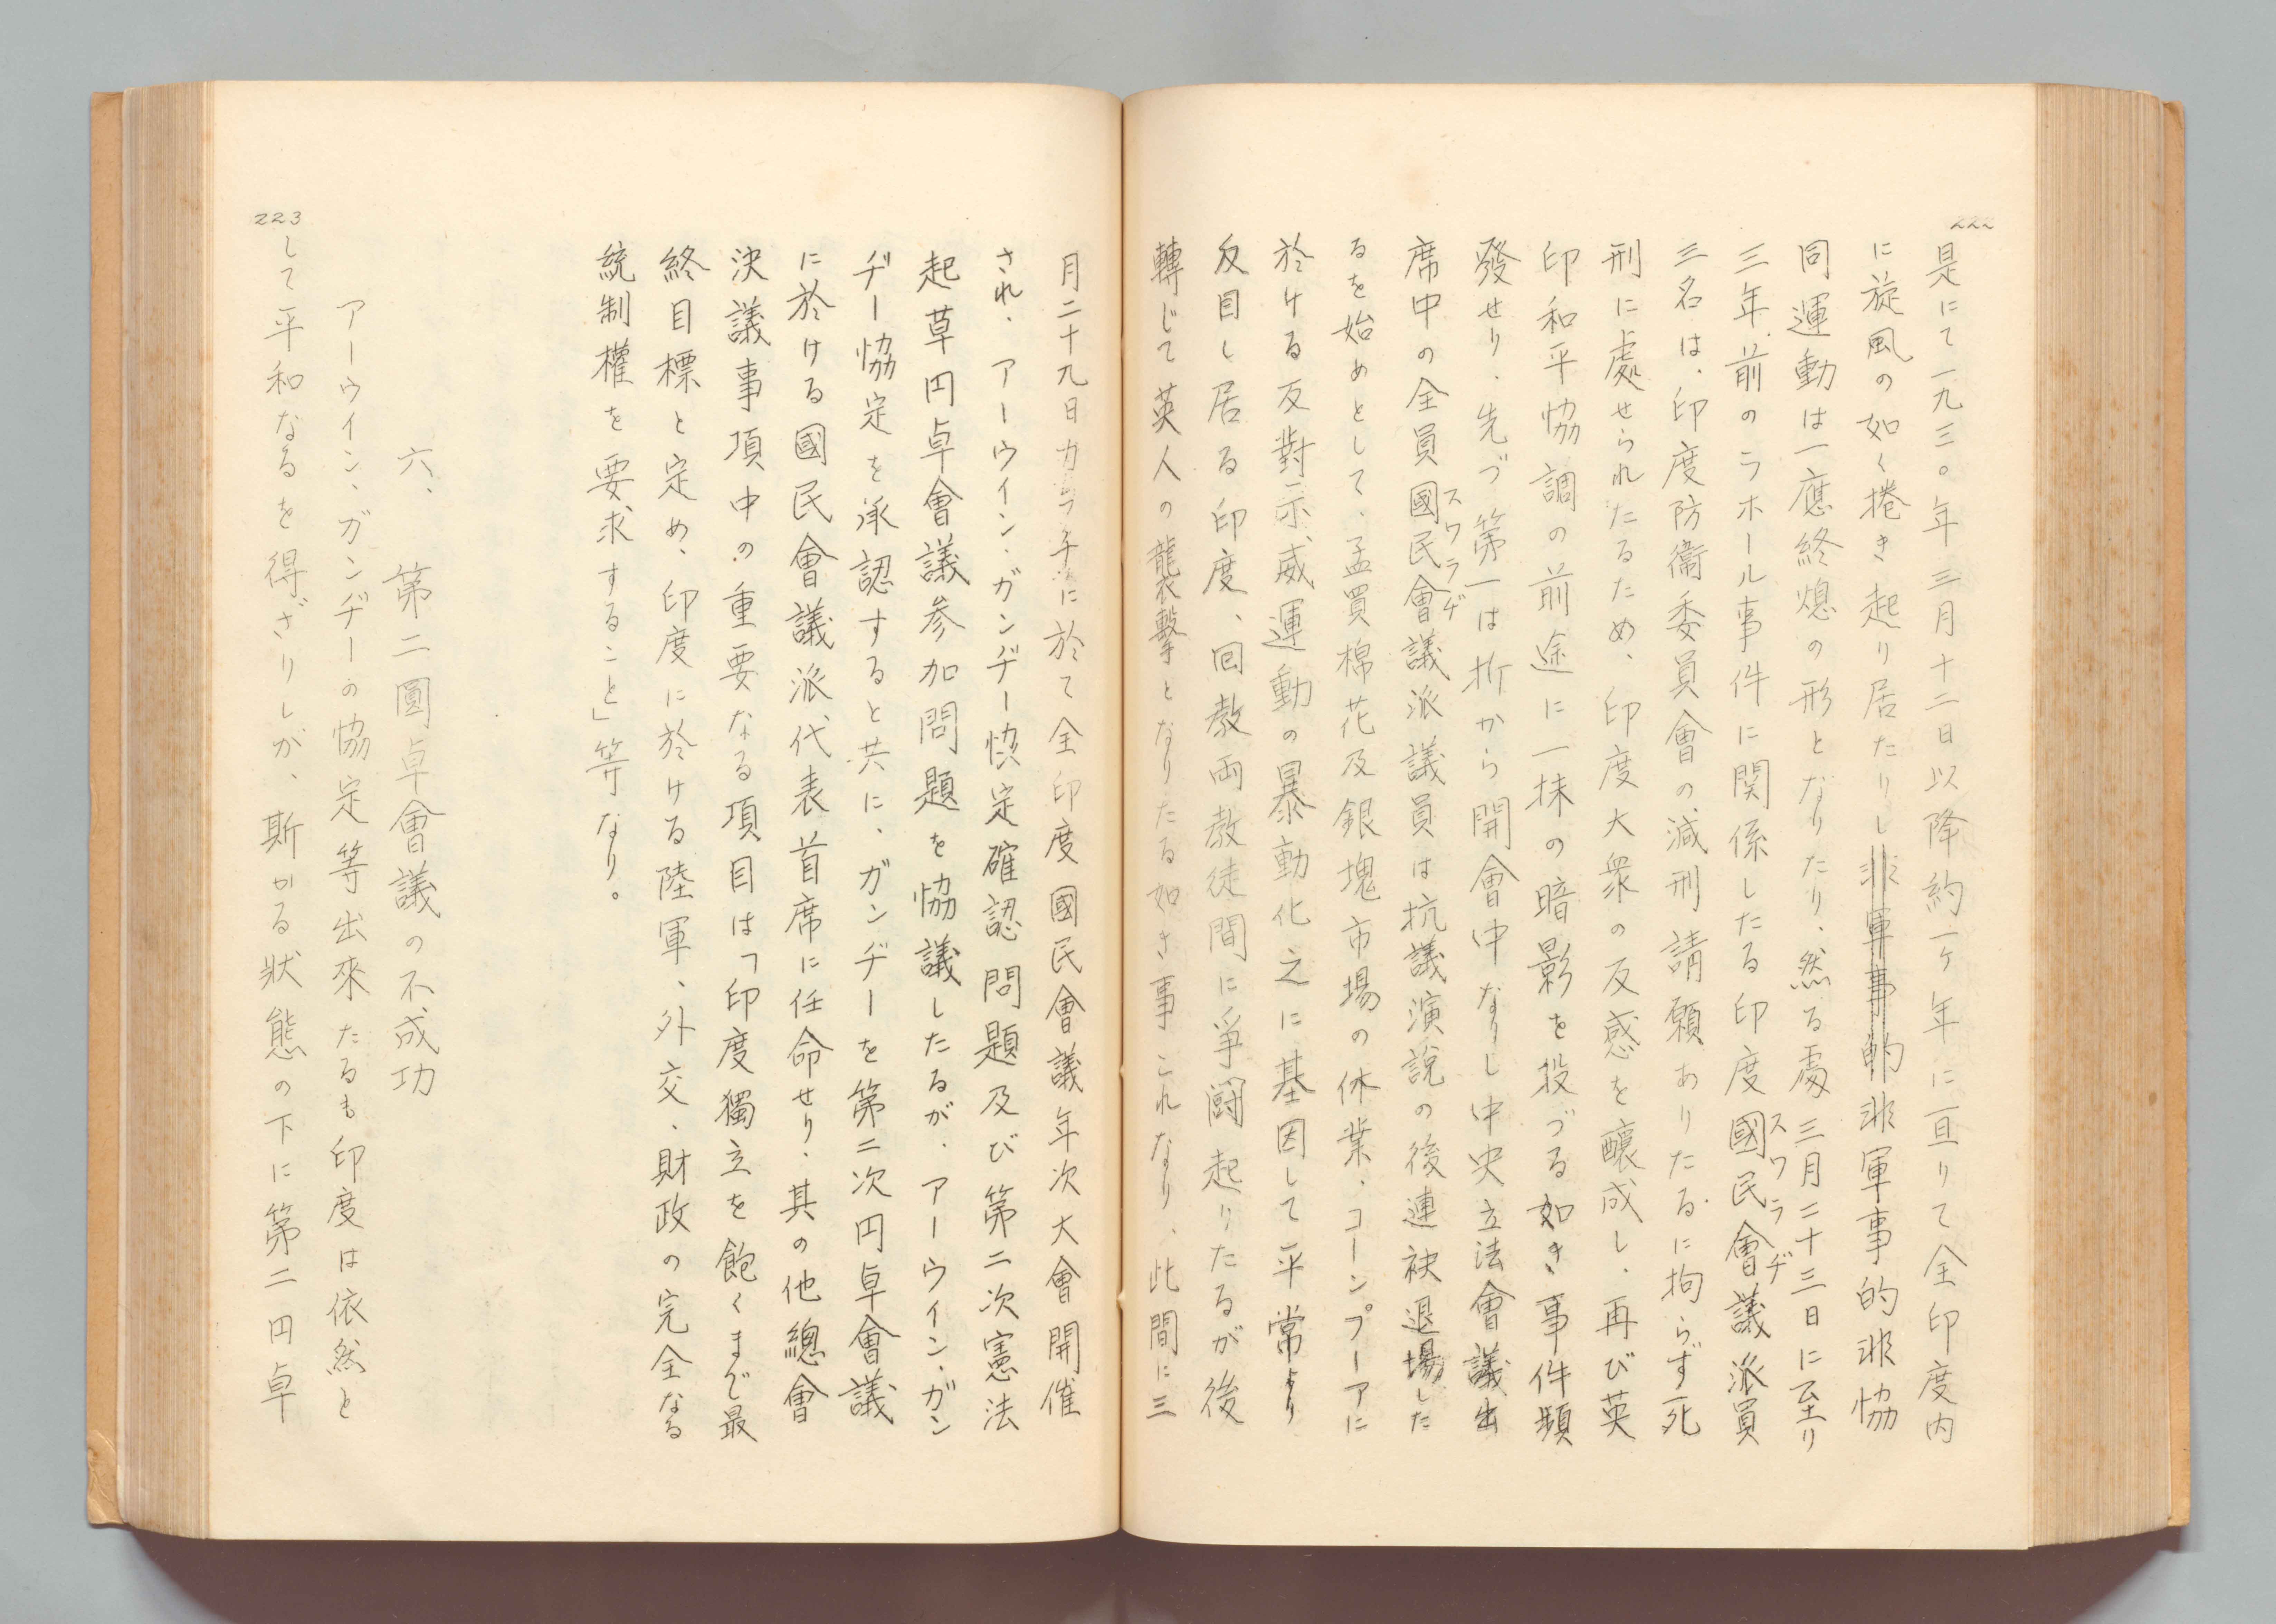 222
是にて一九三〇年三月十二日以降約一ヶ年に亘りて全印度内
に旋風の如く捲き起り居たりし非軍事的非軍事的非協
同運動は一應終熄の形となりたり、然る處三月二十三日に至り
三年前のラホール事件に関係したる印度國民會議派員
スワラヂ
三名は、印度防衞委員會の減刑請願ありたるに拘らず死
刑に處せられたるため、印度大衆の反感を釀成し、再び英
印和平協調の前途に一抹の暗影を投づる如き事件頻
發せり、先づ第一は折から開會中なりし中央立法會議出
席中の全員國民會議派議員は抗議演説の後連袂退場した
スワラヂ
るを始めとして、孟買棉花及銀塊市場の休業、コーンプーアに
於ける反對示威運動の暴動化之に基因して平常より
反目し居る印度、回教両教徒間に爭闘起りたるが後
轉じて英人の襲撃となりたる如き事これなり、此間に三
月二十九日カラチに於て全印度國民會議年次大會開催
され、アーウイン、ガンヂー協定確認問題及び第二次憲法
起草円卓會議参加問題を協議したるが、アーウイン、ガン
ヂー協定を承認すると共に、ガンヂーを第二次円卓會議
に於ける國民會議派代表首席に任命せり、其の他總會
決議事項中の重要なる項目は「印度獨立を飽くまで最
終目標と定め、印度に於ける陸軍、外交、財政の完全なる
統制權を要求すること」等なり。
六、第二圓卓會議の不成功
アーウイン、ガンヂーの協定等出來たるも印度は依然と
して平和なるを得ざりしが、斯かる狀態の下に第二円卓
223